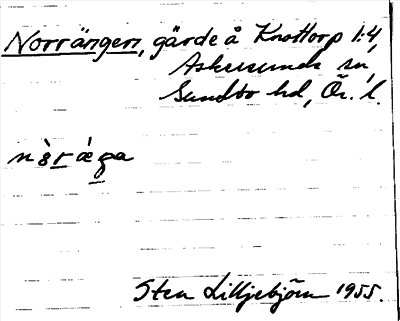 Norrängen, gärde å Knottorp 1:4,
Askersunds sn,
Sundbo hd, Ör. l.
Sten Lilljebjörn 1955.